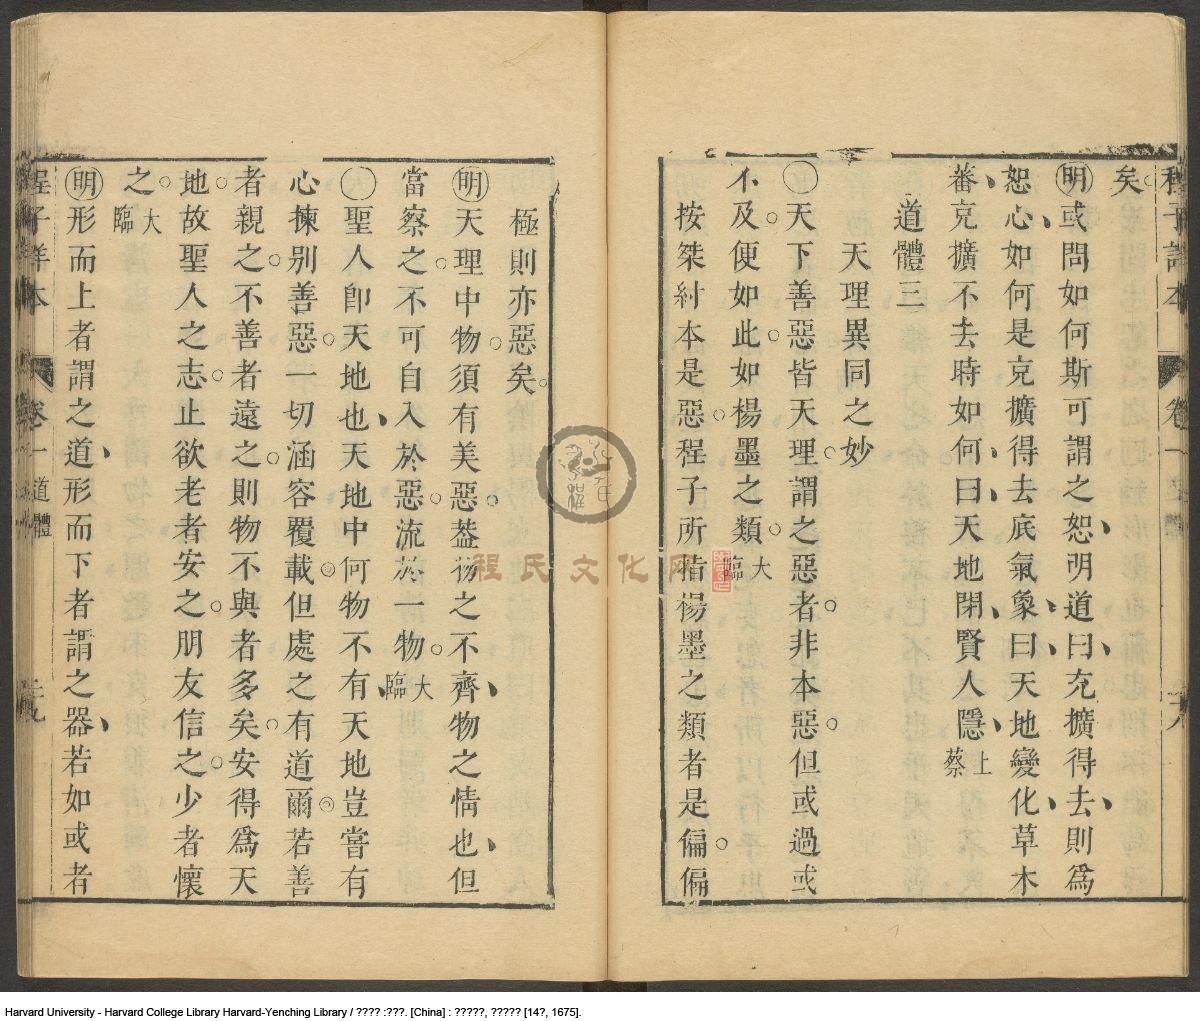 矣
明或問如何斯可謂之恕明道曰充擴得去則為
恕心如何是充擴得去底氣象曰天地變化草木
蕃充擴不去時如何曰天地閉賢人隱上蔡
道體三
天理異同之妙
○天下善惡皆天理謂之惡者非本惡但或過或
不及便如此如楊墨之類大臨
按桀紂本是惡程子所指楊墨之類者是偏偏
極則亦惡矣
明天理中物須有美惡葢物之不齊物之情也但
當察之不可自入於惡流於一物大臨
○聖人卽天地也天地中何物不有天地豈嘗有
心揀别善惡一切涵容覆載但處之有道爾若善
者親之不善者遠之則物不與者多矣安得為天
地故聖人之志止欲老者安之朋友信之少者懷
之大臨
明形而上者謂之道形而下者謂之器若如或者
程子詳本 卷一 道體
程氏文化网
Harvard University - Harvard College Library Harvard-Yenching Library / ???? :???. [China] : ?????, ????? [14?, 1675].